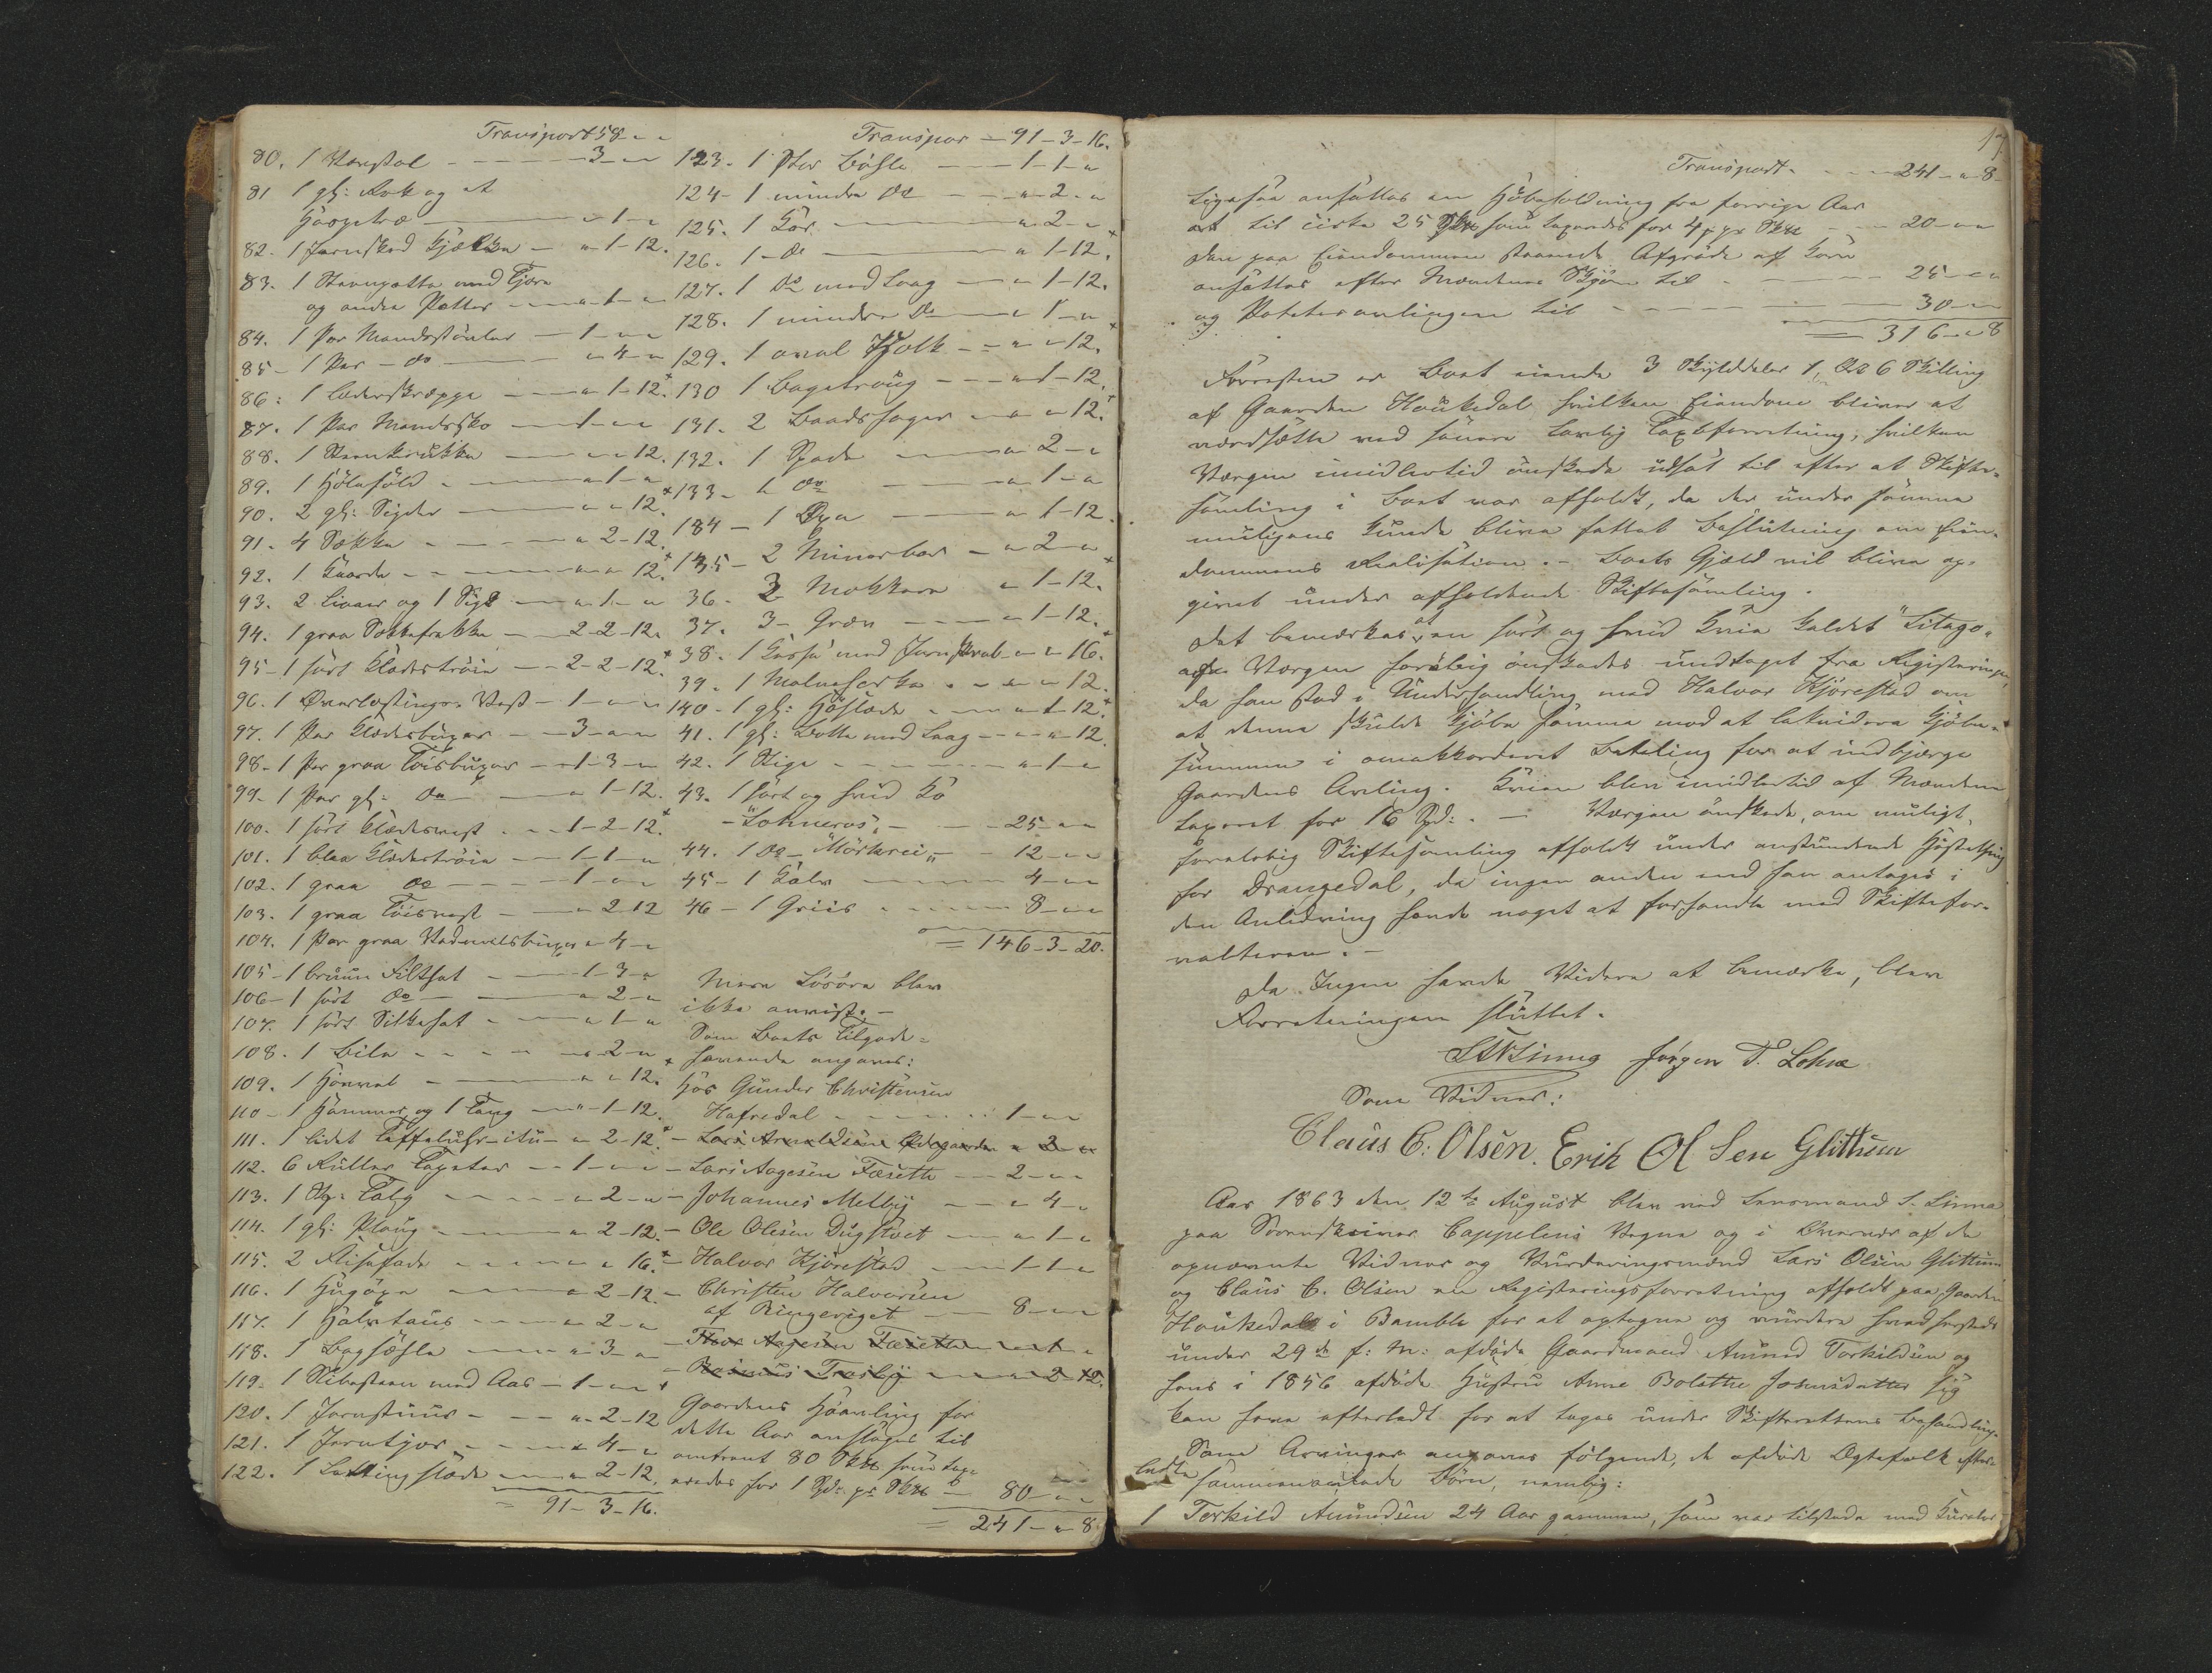 Transport 58 - " - "
80. 1 Vævstol - 3 - " - "
81 1 gl: Rok og et
Haspetræ - " - 1 - "
82. 1 Jernskod Kjælke - " - 1 - 12.
83. 1 Steengotte med Tjære
og andre Potter - " - 1 - "
84. 1 Par Mandsstövler - 1 - " - "
85 - 1 Par - do - " - 4 - "
86: 1 Læderskræppe - " - 1 - 12.
87. 1 Par Mandssko - 1 - " - "
88. 1 Steenkrukke - " - " - 12.
89. 1 - " - 1 - "
90. 2 gl: Sigder - " - " - 12.
91. 4 Sække - " - 2 - 12.
92. 1 Kaarde - " - " - 12.
93. 2 Livaer og 1 Sigd - " - 1 - "
94. 1 graa Sokkefrakke - 2 - 2 - 12.
95 - 1 sort Klædeströie - 2 - 2 - 12.
96. 1 Vest - 1 - " - "
97. 1 Par Klædesbuxer - 3 - " - "
98 - 1 Par graa Töisbuxer - 1 - 3 - "
99. 1 Par gl. do - " - 1 - 12.
100. 1 sort Klædesvest - 1 - 2 - 12.
101. 1 blaa Klædeströie - 1 - 1 - "
102. 1 graa do - 1 - " - "
103. 1 graa Töisvest - " - 2 - 12
104. 1 Par graa Vadmelsbuxer - " - 4 - "
105 - 1 bruun Filthat - 1 - 3 - "
106 - 1 sort do - " - 2 - "
107. 1 sort Silkehat - " - 1 - "
108. 1 Bile - " - 2 - "
109. 1 Hövel - " - " - 12.
110 - 1 Hammer og 1 Tang - " - 1 - 12.
111. 1 lidet Taffeluhr - itu - " - 2 - 12.
112. 6 Ruller Tapeter - 1 - " - "
113. 1 Talg - " - 2 - "
114. 1 gl: Ploug - " - 2 - 12.
115. 2 - " - " - 16.
116. 1 Hugöxe - " - 2 - 12.
117. 1 - " - 2 - "
118. 1 - " - 3 - "
119. 1 Slibesteen med Aas - 1 - " - "
120. 1 Jernstuur - " - 2 - 12
121. 1 - " - 4 - "
122. 1 - " - 2 - 12.
= 91 - 3 - 16.
Transpor - 91 - 3 - 16.
123. 1 Stor Bösle - 1 - 1 - "
124 - 1 mindre do - " - 2 - "
125. 1 Kar - " - 2 - "
126. 1 - do - " - 1 - 12.
127. 1 do med Laag - " - 1 - 12.
128. 1 mindre do - " - 1 - "
129. 1 oval Holk - " - " - 12.
130 1 Bagetroug - " - 1 - 12.
131. 2 Baadshager - " - " - 12.
132. 1 Spade - " - 2 - "
133 - 1 do - " - 1 - "
134 - 1 Öxe - " - 1 - 12.
135 - 2 Minerbor - " - 2 - "
36. 2 Mokkare " - 1 - 12.
37. 3 - Greve - " - 1 - 12.
38. 1 Kasse med Jernskrab - " - " - 16.
39. 1 - " - " - 12.
140 - 1 gl: Höslæde - " - 1 - 12.
41. 1 gl: Bötte med Laag - " - " - 12.
42. 1 Stige - " - 1 - "
43. 1 sort og hvid Ko
- "Lohneros" - 25 - " - "
44. 1 do - "Mörkrei" - 12 - " - "
45 - 1 Kalv - 4 - " - "
46 - 1 Griis - 8 - " - "
= 146 - 3 - 20.
Mere Lösöre blev
ikke anvist. -
Som Boets Tilgode-
havende angaves:
Hos Gunder Christensen
Hafredal - 1 - " - "
- Lars Arnoldsen Ödegaarden " - 3 - "
- Lars Aagesen Fæsette - 2 - " - "
- Johannes Melby - " - 4 - "
- Ole Olesen Dugstvet - " - 1 - "
- Halvor Kjörestad - 1 - 1 - "
- Christen Halvorsen
af Ringeriget - 8 - " - "
- Thor Aagesen Fæsette - " - 1 - "
- Rasmus Træsby - " - 2 - 12.
Gaardens Höavling for
dette Aar ansloges til
omtrent 80 Sk℔ som tax-
eredes for 1 Spd. pr Sk℔ - 80 - " - "
= 241 - " - 8.
17
Transport. - 241 - " - 8 -
Ligesaa ansattes en Höbeholdning fra forrige Aar
til cirka 25 Sk℔ som taxeredes for 4 pr Sk℔ - 20 - " - "
Den paa Eiendommen staaende Afgröde af Korn
ansattes efter Mændenes Skjön til - 25 - " - "
og Potetesavlingen til - 30 - " - "
= 316 - " - 8
Forresten er Boet eiende 3 Skylddaler 1 Ort 6 Skilling
af Gaarden Haukedal hvilken Eiendom bliver at
værdsætte ved senere Lovlig Taxtforretning, hvilken
Værgen imidlertid önskede udsat til efter at Skifte-
samling i Boet var afholdt, da der under samme
muligens kunde blive fattet Beslutning om Eien-
dommens Realisation. - Boets Gjæld vil blive op-
givet under afholdende Skiftesamling.
Det bemærkes, at en sort og hvid Kvie kaldet "Litago"
af Værgen forelöbig önskedes undtaget fra Registeringen,
da han stod i Underhandling med Halvor Kjörestad om
at denne skulde kjöbe samme mod at likvidere Kjöbe-
summen i omakkorderet Betaling for at indbjerge
Gaardens Avling. Kvien blev imidlertid af Mændene
taxeret for 16 Spd: . - Værgen önskede, om muligt,
forelobig Skiftesamling afholdt under anstundende Hösttething
for Drangedal, da ingen anden end han antages i
den Anledning havde noget at forhandle med Skiftefor-
valteren. -
Da Ingen havde Videre at bemærke, blev
Forretningen sluttet.
Jørgen T. Lohne
Som Vidner:
Claus C: Olsen. Erik Ol Sen Glittum
Aar 1863 den 12te August blev ved Lensmand S. Linna
paa Sorenskriver Cappelens Vegne og i Overvær af de
opnævnte Vidner og Vurderingsmænd Lars Olsen Glittum
og Claus C. Olsen en Registeringsforretning afholdt paa Gaarden
Haukedal i Bamble for at optegne og vurdere hvad herstedts
under 29de f: M: afdöde Gaardmand Amund Torkildsen og
hans i 1856 afdöde Hustru Anne Bolette Josunsdatter sig
kan have efterladt for at tages under Skifterettens Behandling.
Som Arvinger angaves fölgende, de afdöde Ægtefolk efter-
ladte sammenavlede Börn, nemlig:
1 Torkild Amundsen 24 Aar gammen, som var tilstede med Kurator